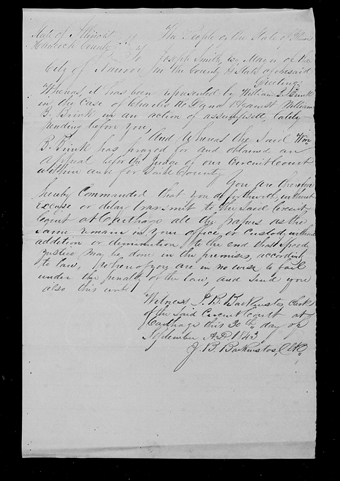 State of Illinois
Hancock County
The People of the State of Illinois
To Joseph Smith, Esq Mayor of the
City of Nauvoo in the County & State aforesaid
Greeting
Whereas it has been represented by William B. Brink
in the Case of Charles A. against William
B. Brink in an action of assumpsit, lately
pending before you,
And Whereas the said Wm
B. Brink has prayed for and obtained an
appeal before the Judge of our Circuit Court
within and for said County,
You are therefore
hereby Commanded that you do forthwith, without
excuse or delay transmit to our said County
Court at Carthage all the papers as the
same remain in your office, or Custody without
addition or diminution, to the end that speedy
justice may be done in the premises, according
to law, you are in no wise to fail
under the penalty of the law, and send you
also this writ
Witness J. B. Backenstos Clerk
of the said Circuit Court at
Carthage this 30 day of
September A.D. 1843
J. B. Backenstos, Clk